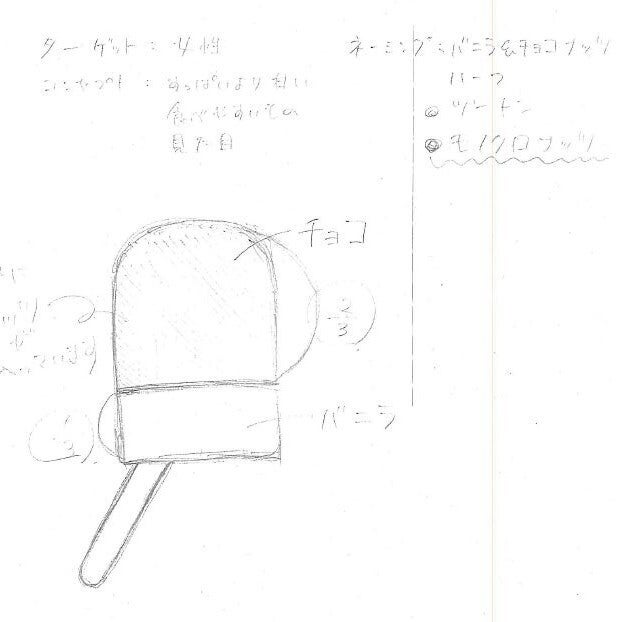 ターゲット：女性
コンセプト：すっぱいより甘い
食べやすい
見た目
ネーミング：バニラ&チョコナッツ
ハーフ
◎ツートン
◎モノクロナッツ
チョコ
2/3
バニラ
1/3